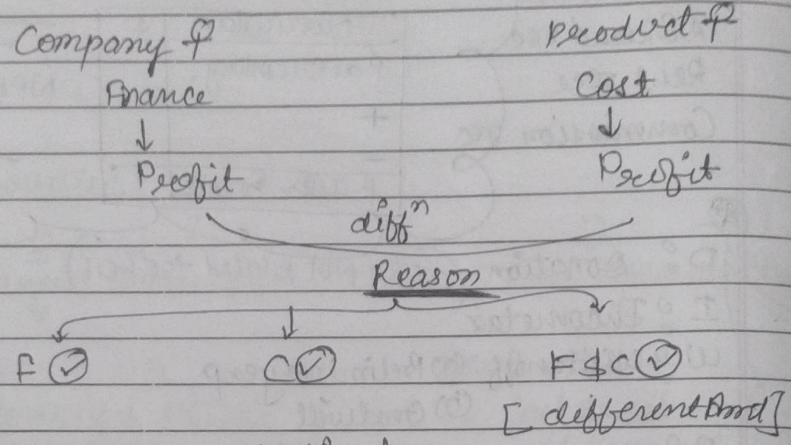 Company P Product P
Finance Cost
↓ ↓
Profit Profit
diffn
Reason
F ✓ C ✓ F & C ✓
[different Amt]